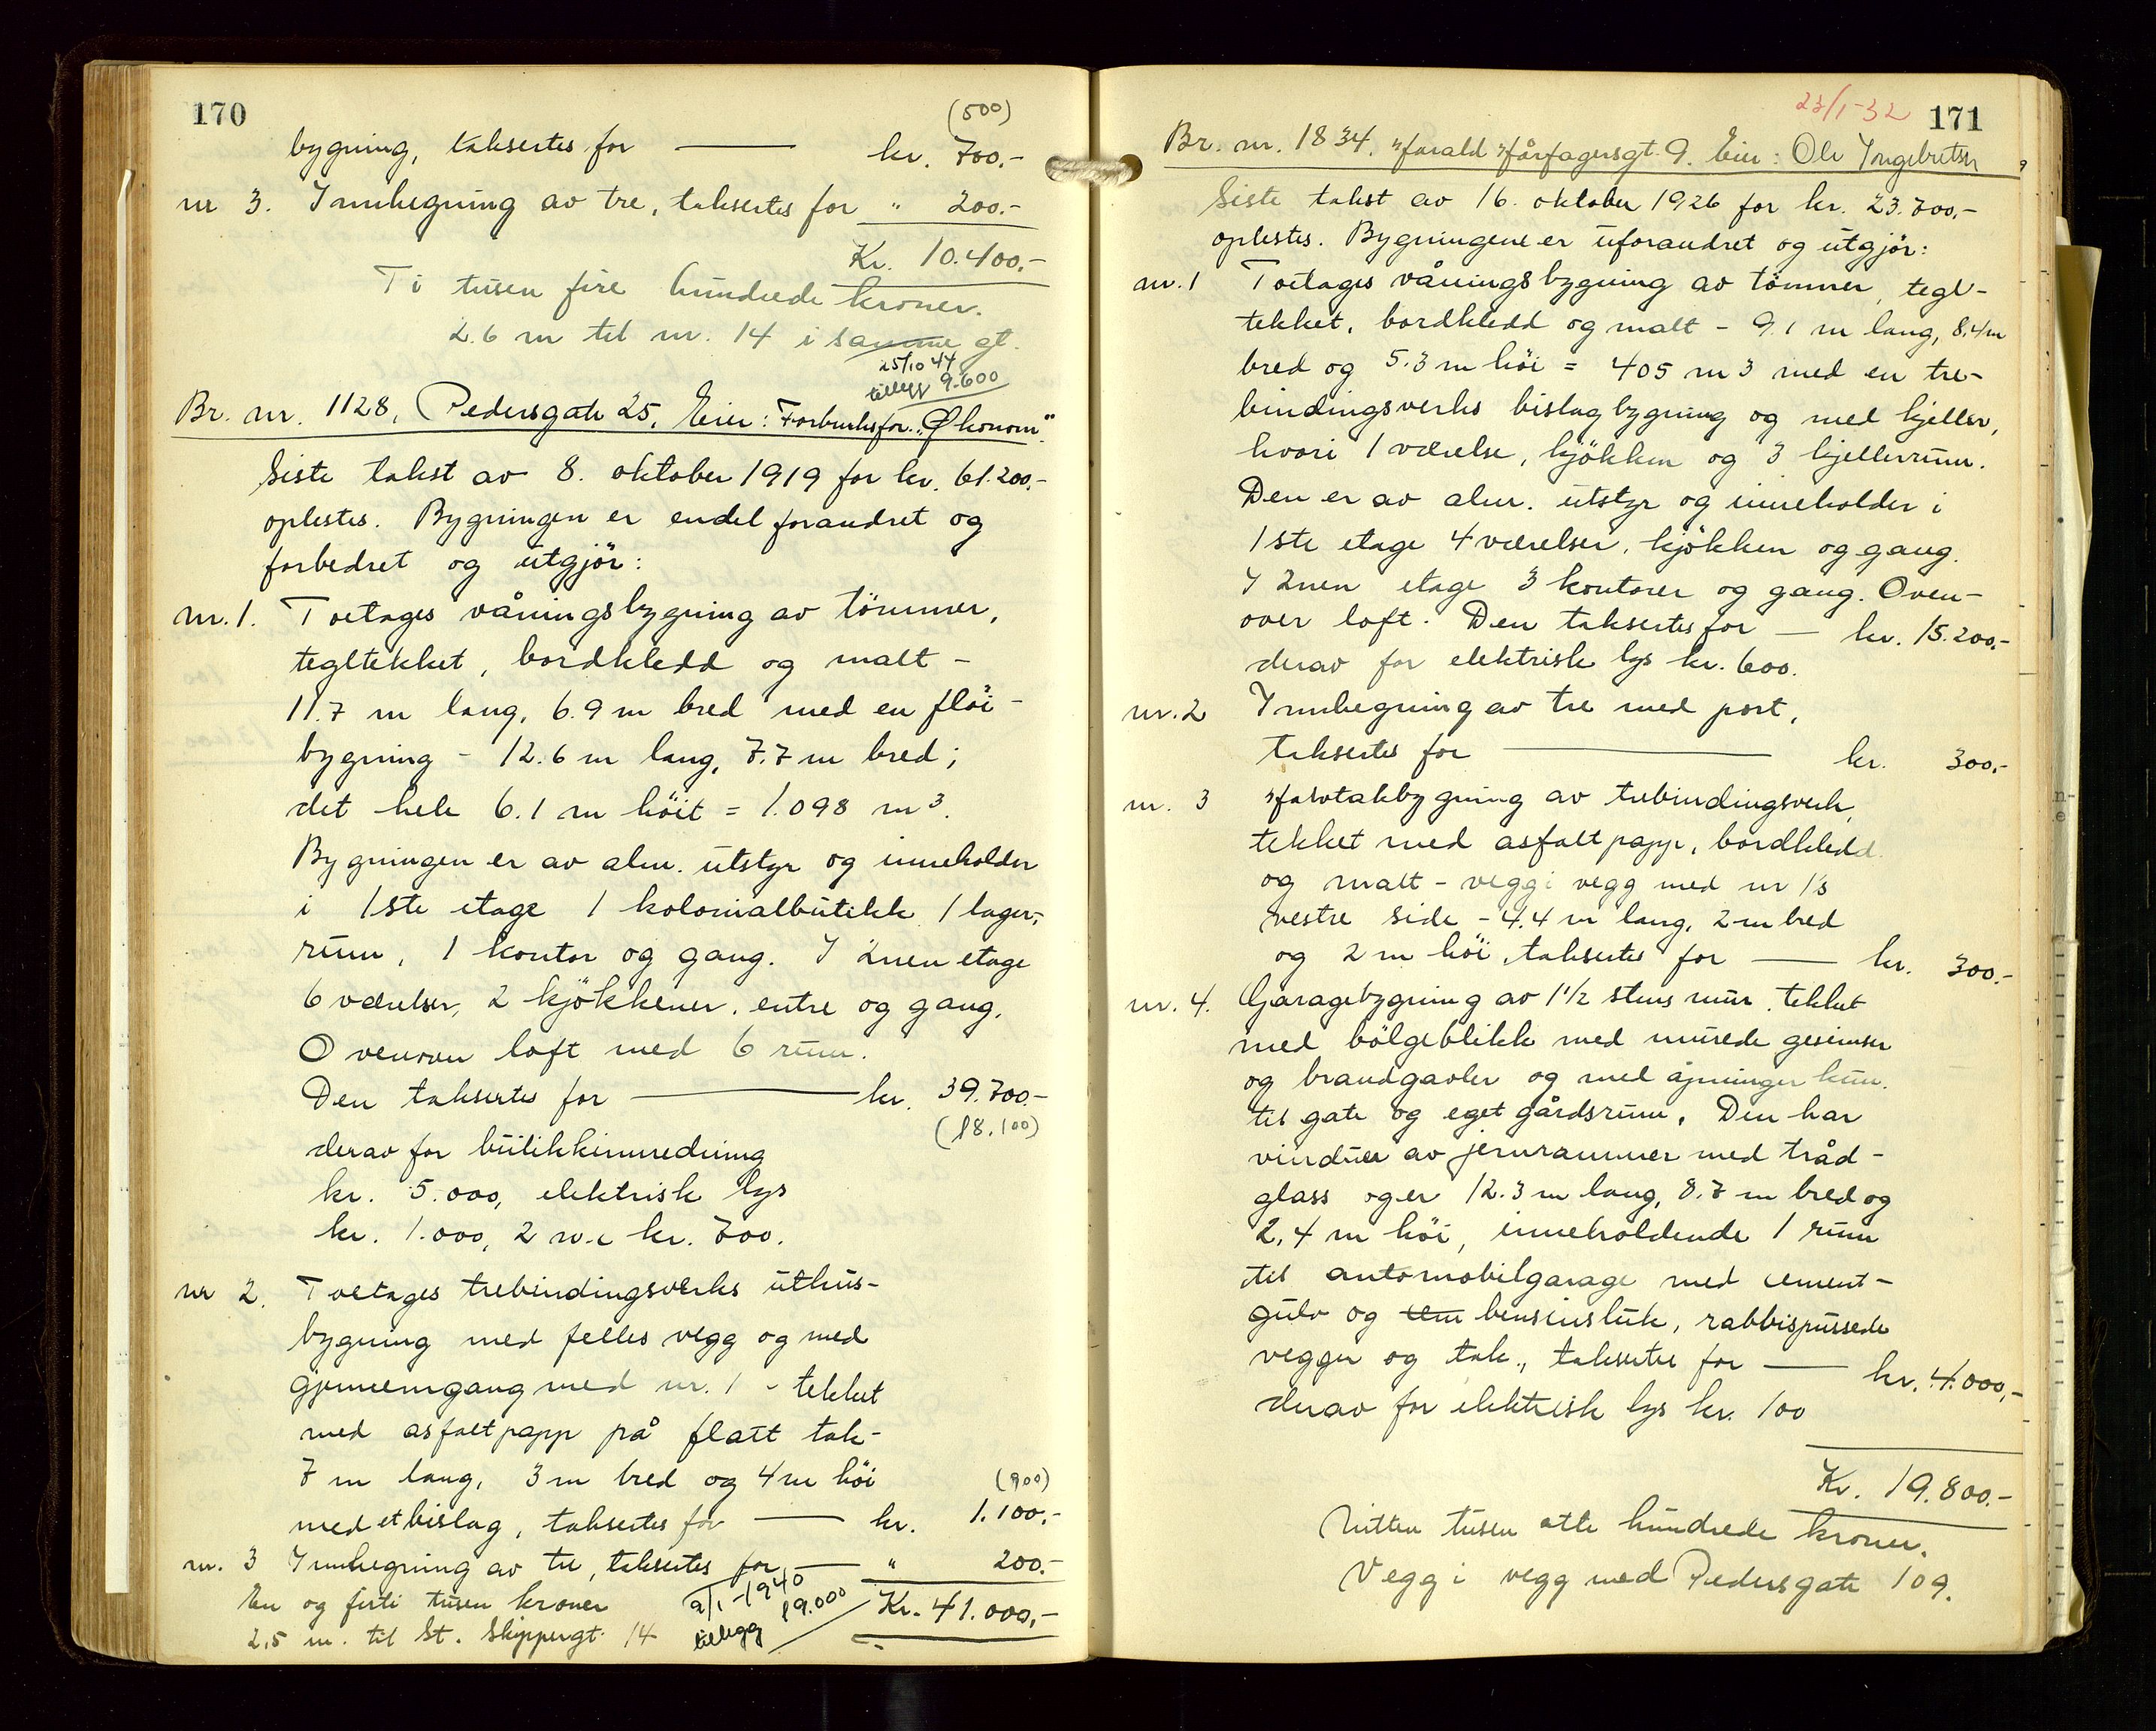 170
(500)
bygning, taksertes for — kr. 700.-
nr 3. Innhegning av tre, taksertes for " 200.-
Kr. 10.400.-
Ti tusen fire hundrede kroner.
2.6 m til nr. 14 i samme gt.
25/10 44
tillegg 9.600
Br. nr. 1128, Pedersgate 25, Eier: Forbruksfor. "Økonom".
Siste takst av 8. oktober 1919 for kr. 61.200.-
oplestes. Bygningen er endel forandret og
forbedret og utgjör:
nr. 1. Toetages våningsbygning av tömmer,
tegltekket, bordkledd og malt -
11.7 m lang, 6.9 m bred med en flöi-
bygning - 12.6 m lang, 7.7 m bred;
det hele 6.1 m höit = 1.098 m3.
Bygningen er av alm. utstyr og inneholder
i 1ste etage 1 kolonialbutikk, 1 lager-
rum, 1 kontor og gang. I 2nen etage
6 værelser, 2 kjökkener, entre og gang.
Ovenover loft med 6 rum.
Den taksertes for — kr. 39.700.-
(18.100)
derav for butikkinnredning
kr. 5.000, elektrisk lys
kr. 1.000, 2 w.c kr. 700.
nr 2. Toetages trebindingsverks uthus-
bygning med felles vegg og med
gjennemgang med nr. 1 - tekket
med asfaltpapp på flatt tak-
7 m lang, 3 m bred og 4 m höi
(900)
med et bislag, taksertes for — kr. 1.100.-
nr. 3 Innhegning av tre, taksertes for — " 200.-
En og firti tusen kroner Kr. 41.000,-
2/1-1940
tillegg 19.000
2,5 m. til St. Skippergt. 14
23/1-32
171
Br. nr. 1834. Harald Hårfagersgt. 9. Eier: Ole Ingebretsen
Siste takst av 16. oktober 1926 for kr. 23.700,-
oplestes. Bygningene er uforandret og utgjör:
nr. 1 Toetages våningsbygning av tömmer, tegl-
tekket, bordkledd og malt - 9.1 m lang, 8,4 m
bred og 5.3 m höi = 405 m3 med en tre-
bindingsverks bislagbygning og med kjeller,
hvori 1 værelse, kjökken og 3 kjellerrum.
Den er av alm. utstyr og inneholder i
1ste etage 4 værelser, kjökken og gang.
I 2nen etage 3 kontorer og gang. Oven-
over loft. Den taksertes for — kr. 15.200,-
derav for elektrisk lys kr. 600.
nr. 2 Innhegning av tre med port,
taksertes for — kr. 300,-
nr. 3 Halvtakbygning av trebindingsverk,
tekket med asfaltpapp, bordkledd
og malt - vegg i vegg med nr 1's
vestre side - 4.4 m lang, 2 m bred
og 2 m höi, taksertes for — kr. 300.-
nr. 4. Garagebygning av 1 1/2 stens mur, tekket
med bölgeblikk med murede gesimser
og brandgavler og med åpninger kun
til gate og eget gårdsrum. Den har
vinduer av jernrammer med tråd-
glass og er 12.3 m lang, 8.7 m bred og
2,4 m höi, inneholdende 1 rum
til automobilgarage med cement-
gulv og bensinsluk, rabbispussede
vegger og tak., taksertes for — kr. 4.000,-
derav for elektrisk lys kr. 100
Kr. 19.800.-
Nitten tusen åtte hundrede kroner.
Vegg i vegg med Pedersgate 109.